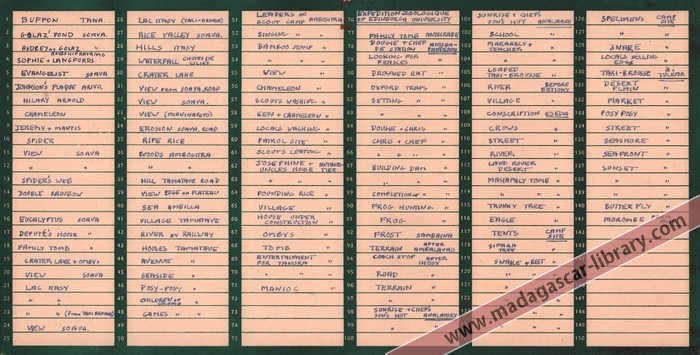 1 BUFFON TANA
2 GOLAZ' POND SOAVA.
3 AUDREY & GOLAZ AMBOHIPATRIMO
4 SOPHIE & LANGFORDS
5 EVANGELIST SOAVA
6 JOHNSON'S PLAQUE ARIVO.
7 HILARY ARNOLD
8 CHAMELEON
9 JEREMY + MANTIS
10 SPIDER
11 VIEW SOAVA
12 " "
13 SPIDER'S WEB
14 DOUBLE RAINBOW
15
16 EUCALYPTUS SOAVA
17 DEPUTÉ'S HOUSE "
18 FAMILY TOMB "
19 CRATER LAKE + OMBY.
20 VIEW SOAVA
21 LAC ITASY
22 " "
23 " " (FROM TAXI-BROUSSE)
24 VIEW SOAVA.
25
26 LAC ITASY (TAXI-BROUSSE)
27 RICE VALLEY SOAVA.
28 HILLS ITASY
29 WATERFALL CHUTES DE LILIES
30 CRATER LAKE
31 VIEW FROM SOATA. ROAD
32 VIEW SOAVA.
33 VIEW (MIARINARIVO)
34 EROSION SOATA. ROAD
35 RIPE RICE
36 WOODS AMBOSITRA
37 " "
38 HILL TAMATAVE ROAD
39 VIEW EDGE OF PLATEAU
40 SEA AMBILA
41 VILLAGE TAMATAVE
42 RIVER BY RAILWAY
43 HOUSES TAMATAVE
44 AVENUE "
45 SEASIDE "
46 POSY-POSY "
47 CHILDREN OF COLLEGE "
48 GAMES " "
49
50
51 LEADERS OF SCOUT CAMP AMBOSITRA
52 SINGING "
53 BAMBOO JUMP "
54 " "
55 VIEW "
56 CHAMELEON "
57 SCOUTS WASHING "
58 KEN + CHAMELEON "
59 LOCALS WASHING "
60 PATROL SITE "
61 SCOUTS LEAVING "
62 JOSEPHINE + UNCLES HOUSE
63 " "
64 POUNDING RICE "
65 VILLAGE "
66 HOUSE UNDER CONSTRUCTION "
67 OMBYS "
68 TOMB "
69 ENTERTAINMENT FOR TANORA "
70 " "
71 MANIOC "
72
73
74
75
EXPEDITION ZOOLOGIQUE OF EDINBURGH UNIVERSITY
77 FAMILY TOMB ANTSIRABE
78 DOUGIE + CHEF DE STATION
79 LOOKING FOR FENICES "
80 DROWNED RAT "
81 OXFORD TRAPS "
82 SETTING " "
83 " " "
84 DOUGIE + CHRIS "
85 CHRIS + CHEF "
86 " + " "
87 BUILDING DAM "
88 " " "
89 COMPLETION OF "
90 FROG HUNTING "
91 FROG "
92 FROST SAMBAINA
93 TERRAIN AFTER AMBALAVAO
94 COACH STOP AFTER IHOSY
95 ROAD "
96 TERRAIN "
97 " "
98 SUNRISE + CHEFS SON'S HUT ANALAVORY
99
100
101 SUNRISE + CHEFS SON'S HUT ANALAVORY
102 SCHOOL "
103 MAHARETRY + TEACHER "
104 " "
105 LOADED TAXI-BROUSSE "
106 RIVER BEFORE BETIOKY
107 VILLAGE "
108 CONSCRIPTION EJEDA
109 CROWS "
110 STREET "
111 RIVER "
112 LAND ROVER DESERT "
113 MAHAFALY TOMB "
114 " "
115 TRUNKY TREE "
116 EAGLE "
117 TENTS CAMP SITE
118 TREE "
119 SNAKE + REST "
126 SPECIMENS CAMP SITE
127 " "
128 SNARE "
129 LOCALS SELLING "
130 TAXI-BROUSSE TULEAR
131 DESERT PLAIN "
132 MARKET "
133 POSY POSY "
134 STREET "
135 SEASHORE "
136 SEA FRONT "
137 SUNSET "
138 " "
139 " "
140 BUTTERFLY "
www.madagascar-library.com